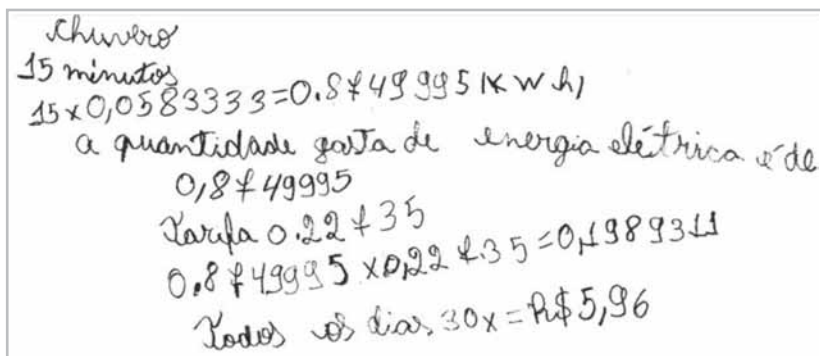 Chuvero
15 minutos
15x0,0583333=0.8749995 KWh/
a quantidade gasta de energia elétrica é de
0,8749995
Tarifa 0.22735
0.8749995 x 0,22735=0,1989311
Todos os dias 30x=R$5,96